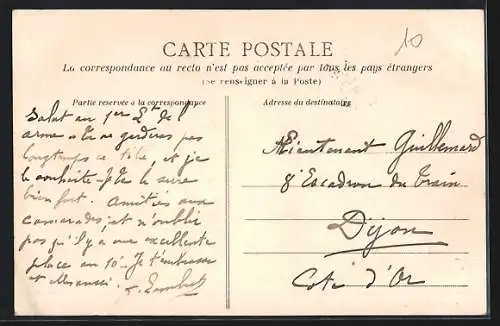 10
CARTE POSTALE
La correspondance au recto n'est pas acceptée par tous les pays étrangers
(Se renseigner à la Poste)
Partie réservée à la correspondance
Adresse du destinataire
Salut au 1er Lt de l'
arme. Tu ne garderas pas
longtemps ce titre, et je
te le serre
bien fort. Amitiés aux
camarades, et n'oublie
pas qu'il y a une excellente
place au 10e. Je t'embrasse
et
Lieutenant Guillemard
8e Escadron du Train
Dijon
Cote d'Or